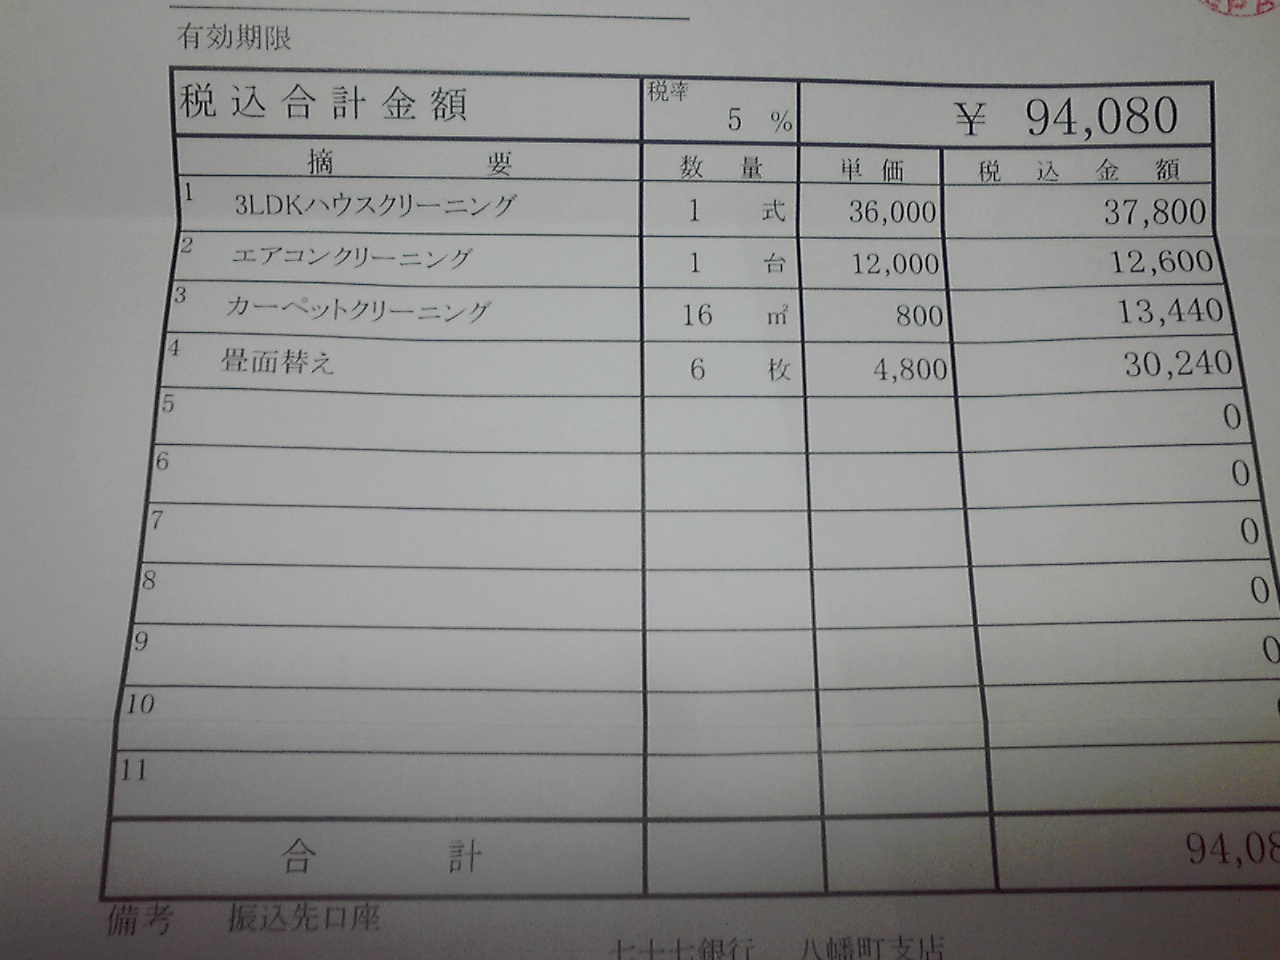 有効期限
税込合計金額 税率 5 % ¥ 94,080
摘要 数量 単価 税込金額
1 3LDKハウスクリーニング 1 式 36,000 37,800
2 エアコンクリーニング 1 台 12,000 12,600
3 カーペットクリーニング 16 ㎡ 800 13,440
4 畳面替え 6 枚 4,800 30,240
5 0
6 0
7 0
8 0
9 0
10
11
合計 94,08
備考 振込先口座
七十七銀行 八幡町支店